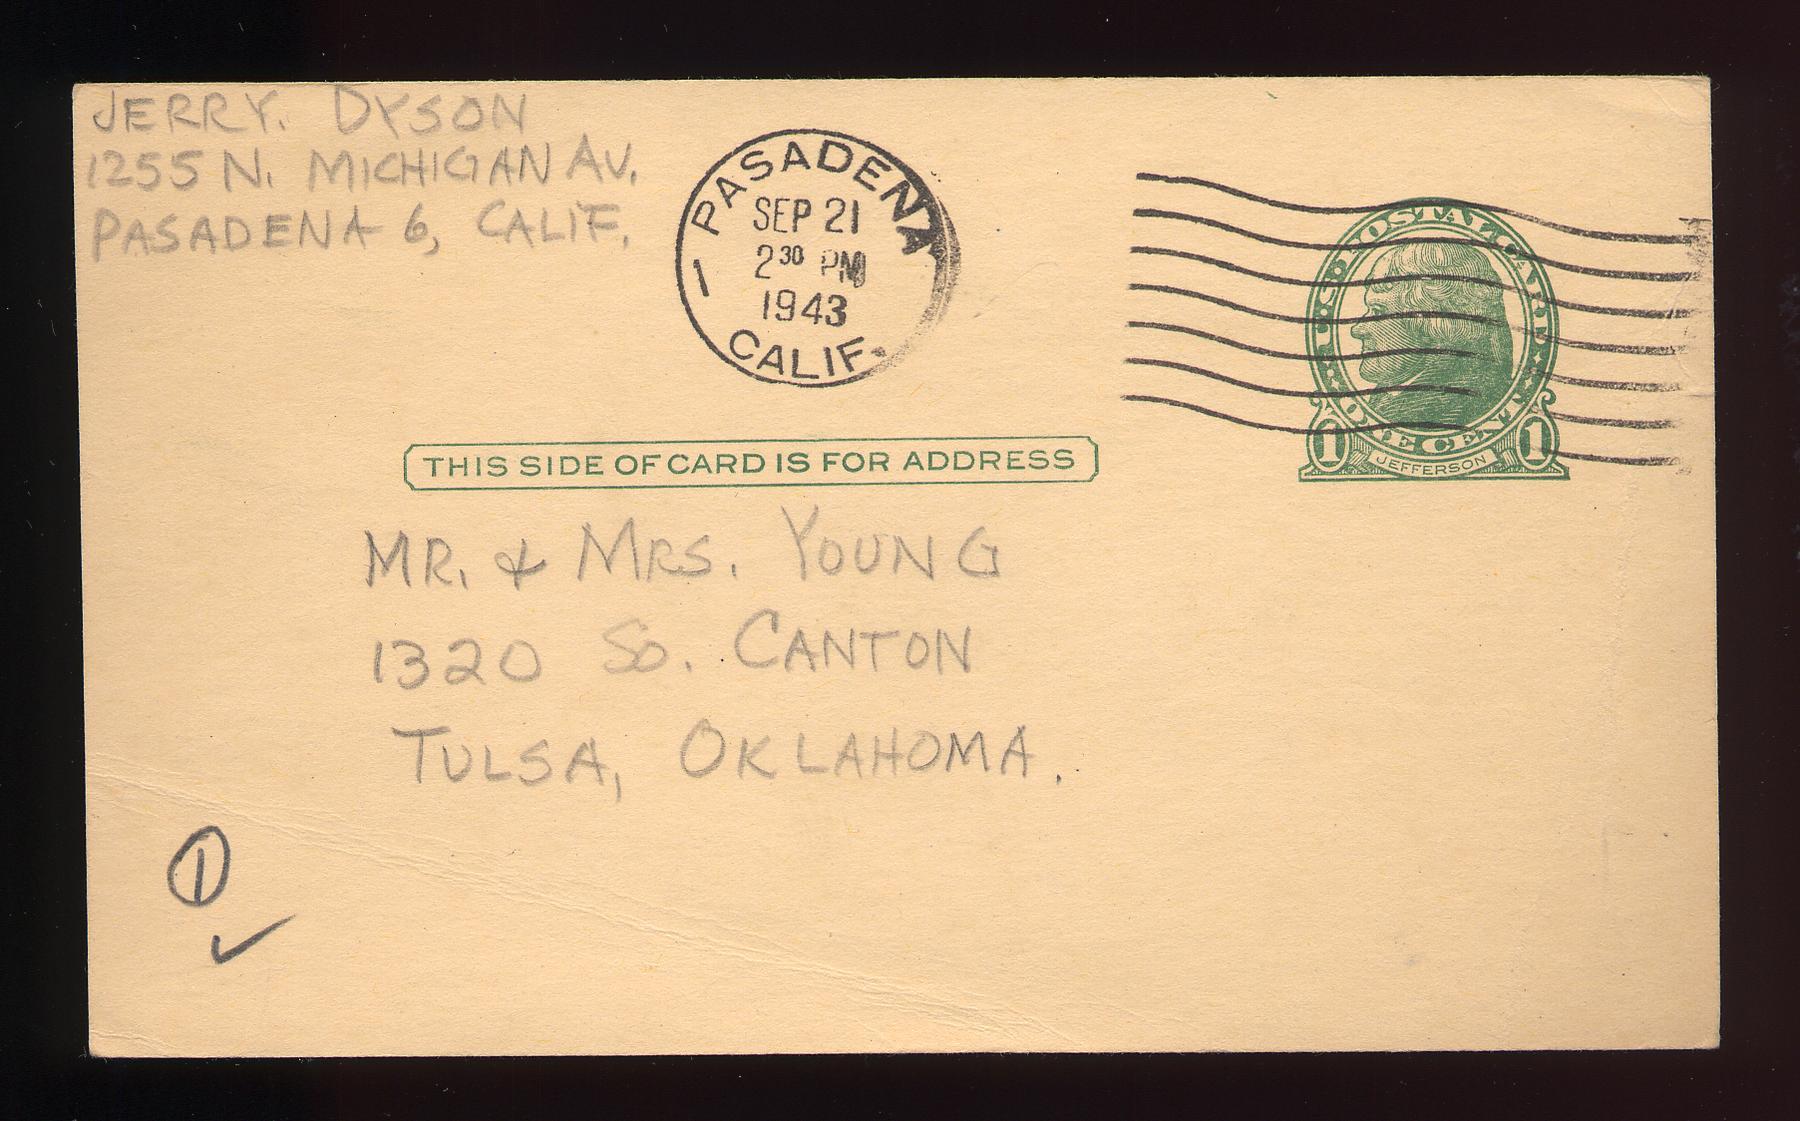 JERRY. DYSON
1255 N. MICHIGAN AV.
PASADENA 6, CALIF.
PASADENA
SEP 21
2 30 PM
1943
CALIF.
U.S. POSTAL CARD
ONE CENT
1 JEFFERSON 1
THIS SIDE OF CARD IS FOR ADDRESS
MR. & MRS. YOUNG
1320 SO. CANTON
TULSA, OKLAHOMA.
1